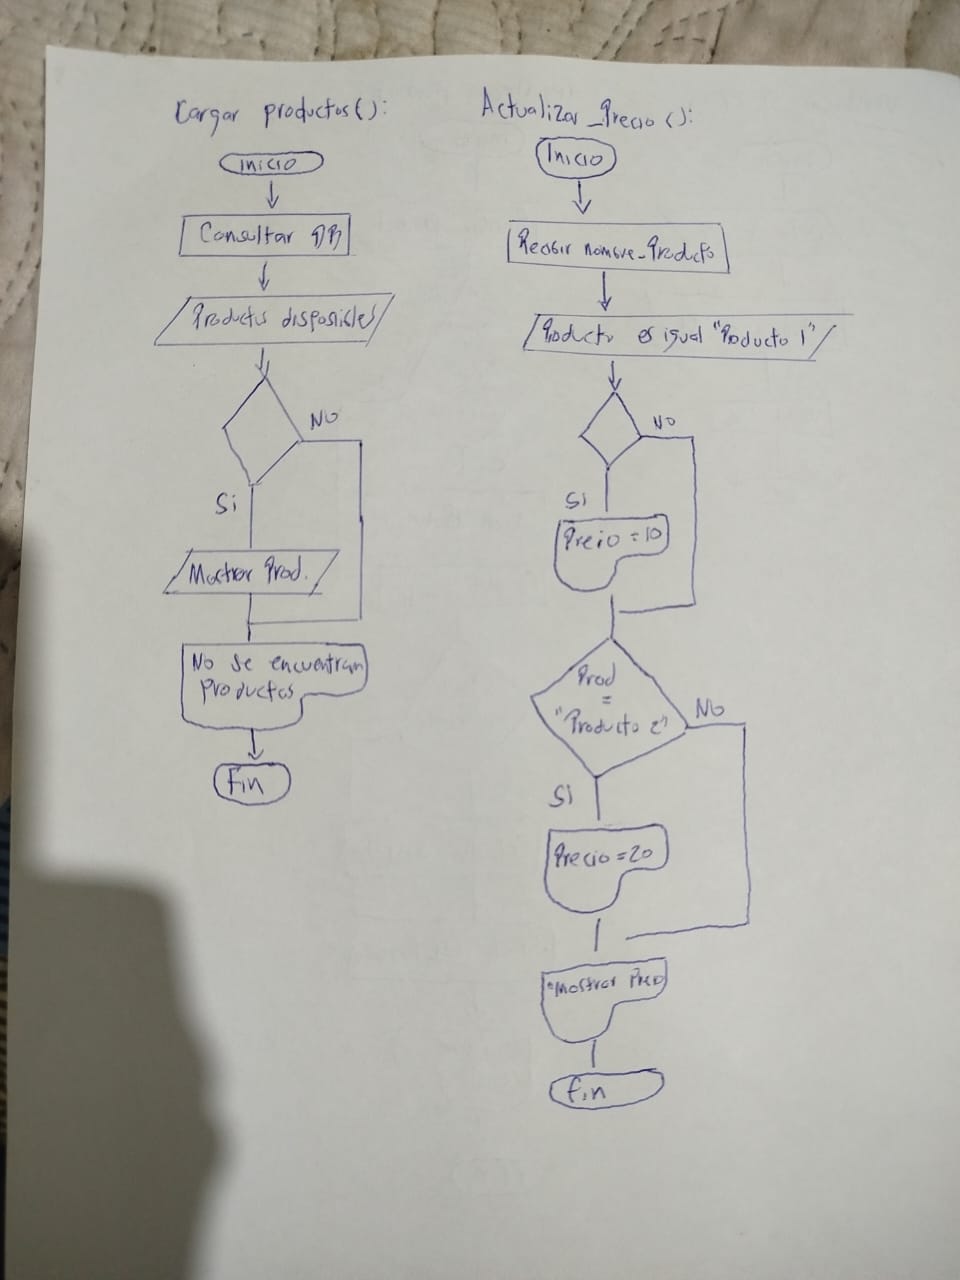 Cargar productos():
inicio
Consultar DB
Productos disponibles
NO
Si
Mostrar Prod.
No se encuentran
productos
Fin
Actualizar_Precio():
Inicio
Recibir nombre_Producto
Producto es igual "Producto 1"
NO
Si
Precio = 10
Prod
=
"Producto 2"
NO
Si
Precio = 20
"Mostrar
Fin